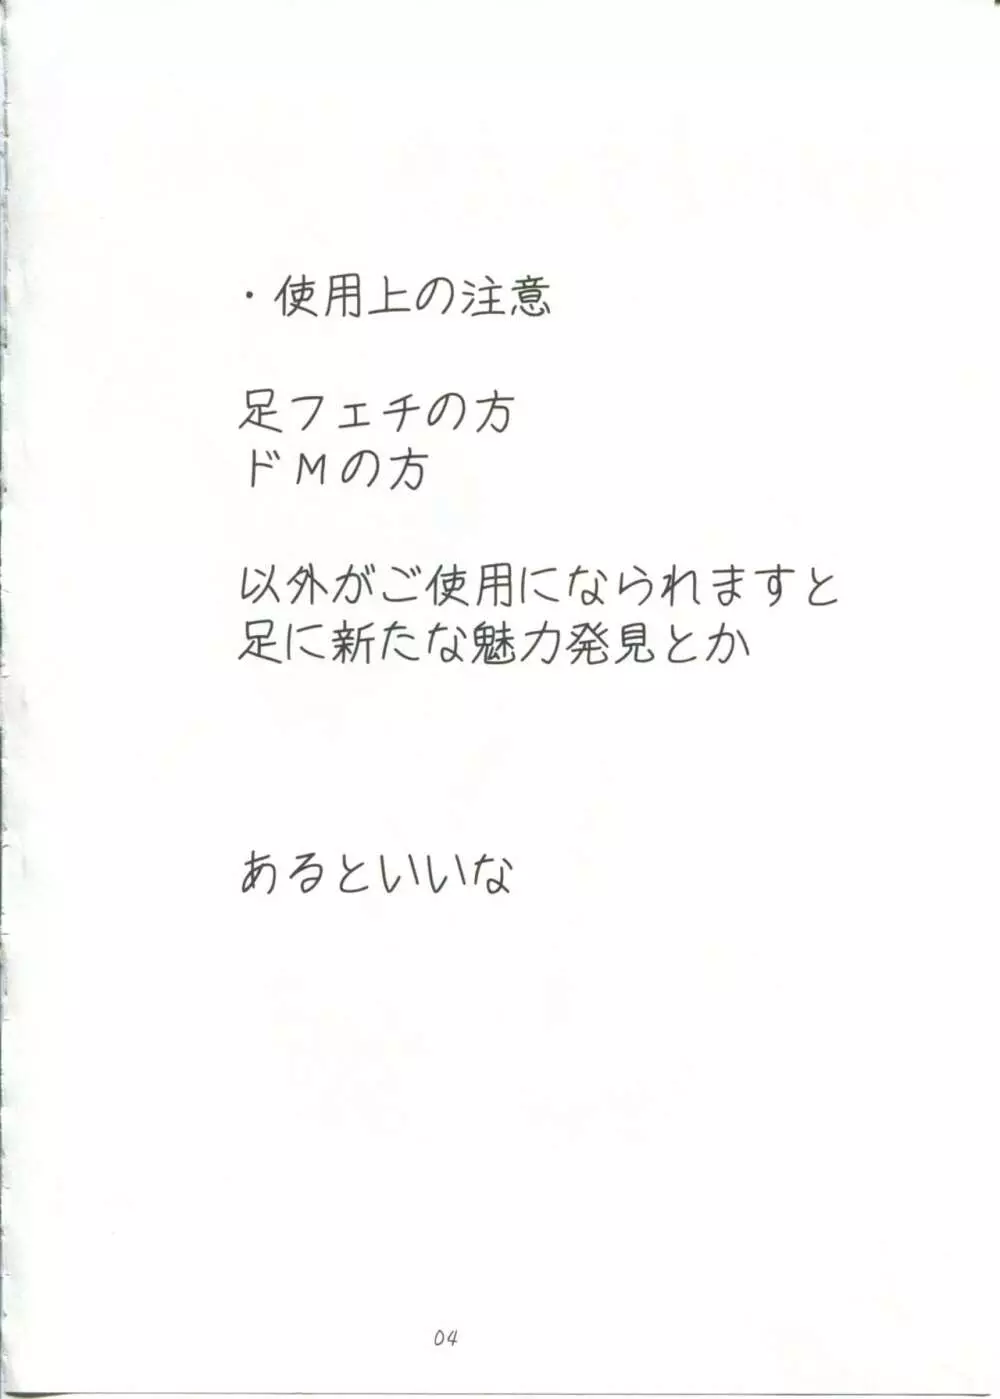 ・使用上の注意
足フェチの方
ドMの方
以外がご使用になられますと
足に新たな魅力発見とか
あるといいな
04